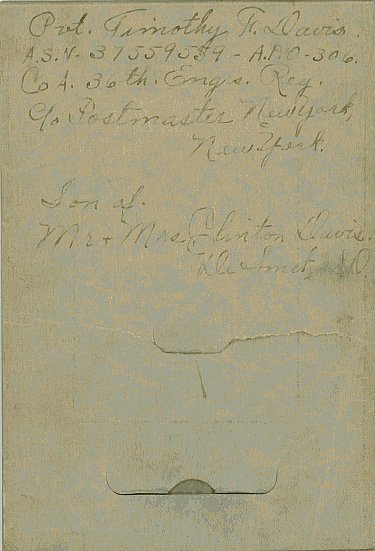 Pvt. Timothy F. Davis.
A.S.N- 37559559 - A.P.O-306.
Co A. 36th. Engrs. Reg.
C/o Postmaster New York,
New York.
Son of.
Mr + Mrs Clinton Davis.
De Smet, S.D.